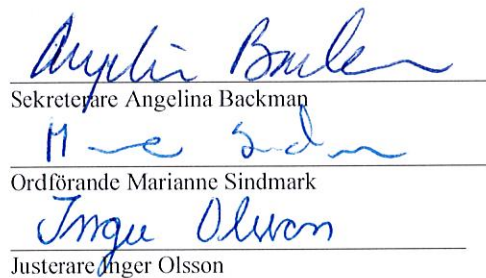 Angelin Backman
Sekreterare Angelina Backman
Ordförande Marianne Sindmark
Inger Olsson
Justerare Inger Olsson